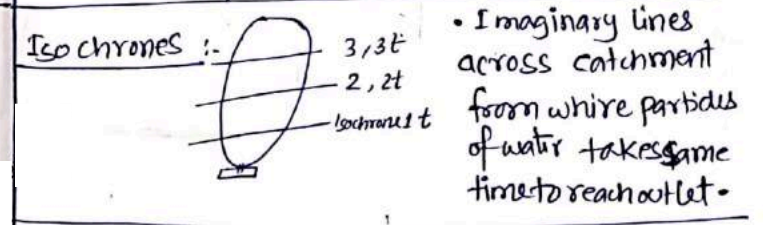 Isochrones :-
3, 3t
2, 2t
Isochrone 1 t
• Imaginary lines
across catchment
from whire particles
of water takes same
time to reach outlet.